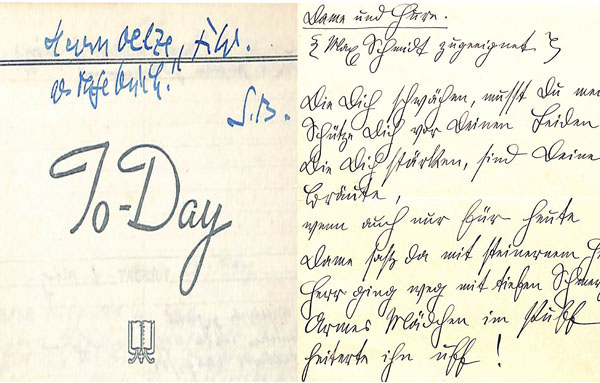 Herrn Oelze, für
Tagebuch."
To-Day
Dame und Hure.
{ Max Schmidt zugeeignet }
Die Dich schwächen, musst Du mei
Schütze Dich vor Deinen Leiden
Die Dich stärken, sind Deine
Bräute,
wenn auch nur für heute
Dame sass da mit steinernem
Herr ging weg mit tiefen Schmer
Armes Mädchen im Puff
heiterte ihn uff !